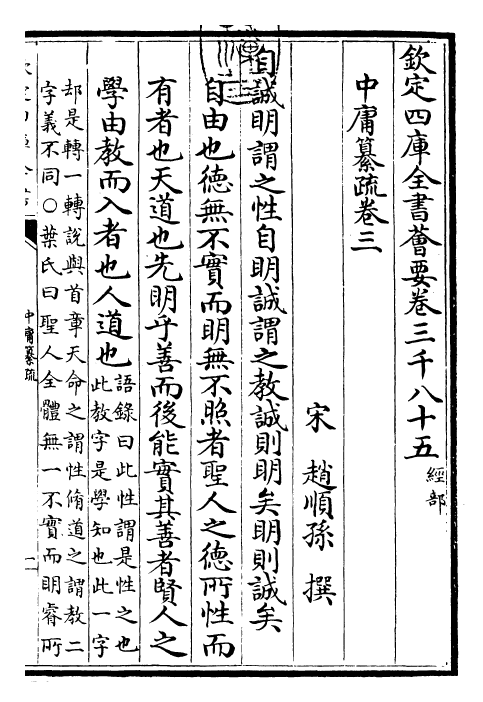 欽定四庫全書薈要卷三千八十五
經部
中庸纂疏卷三
宋 趙順孫 撰
自誠明謂之性自明誠謂之教誠則明矣明則誠矣
自由也德無不實而明無不照者聖人之德所性而
有者也天道也先明乎善而後能實其善者賢人之
學由教而入者也人道也
語錄曰此性謂是性之也
此教字是學知也此一字
却是轉一轉說與首章天命之謂性脩道之謂教二
字義不同○葉氏曰聖人全體無一不實而明睿所
中庸纂疏